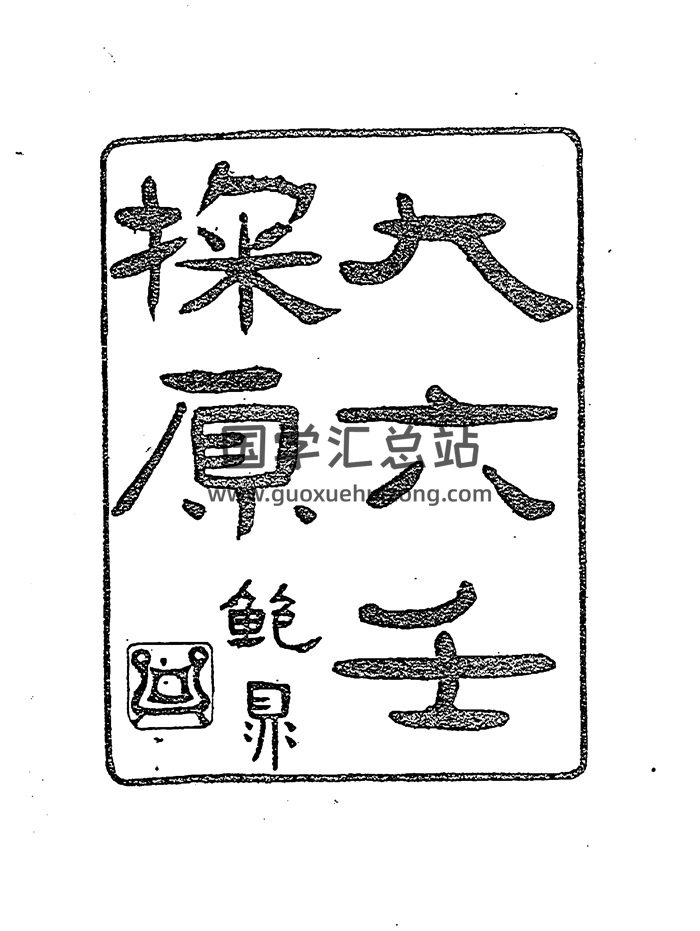 大六壬
探原
鮑鼎
国学汇总站
www.guoxuehuizong.com